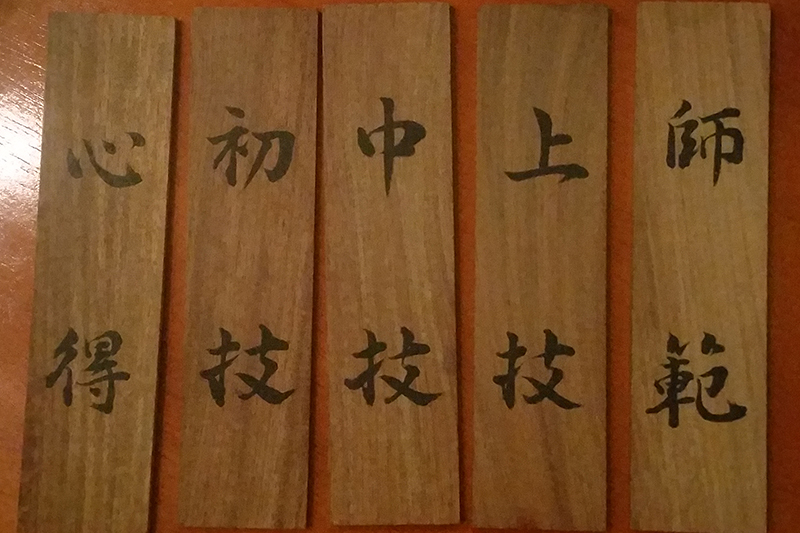 師範
上技
中技
初技
心得